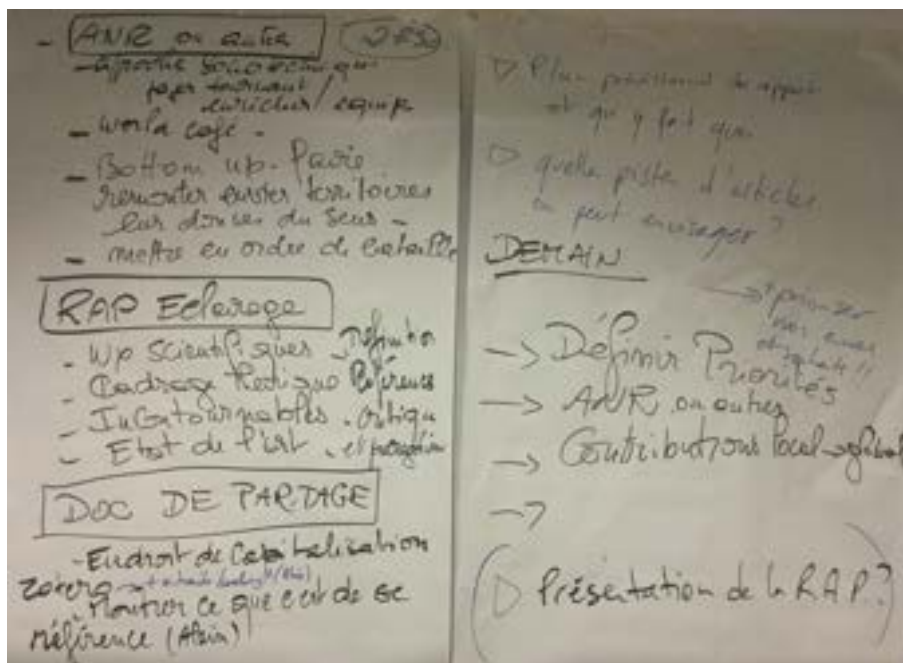 - ANR ou autre
- Approche
pour tournant /
enrichir / équipe
- World café -
- Bottom up.
remonter territoires
leur donner du sens -
- mettre en ordre de bataille
RAP Eclairage
- WP scientifiques - Définition
- Cadrage Référence
- Incontournables - critique
- Etat de l'art -
DOC DE PARTAGE
- Endroit de Capitalisation
Zotero →
- Montrer ce que c'est de se
référence (Alain)
▷ Plan prévisionnel de
et qui y fait quoi
▷ quelle piste d'articles
on peut envisager ?
DEMAIN
→ Définir Priorités
→ ANR ou autres
→ Contributions local → global
→
(▷ Présentation de la RAP ?)